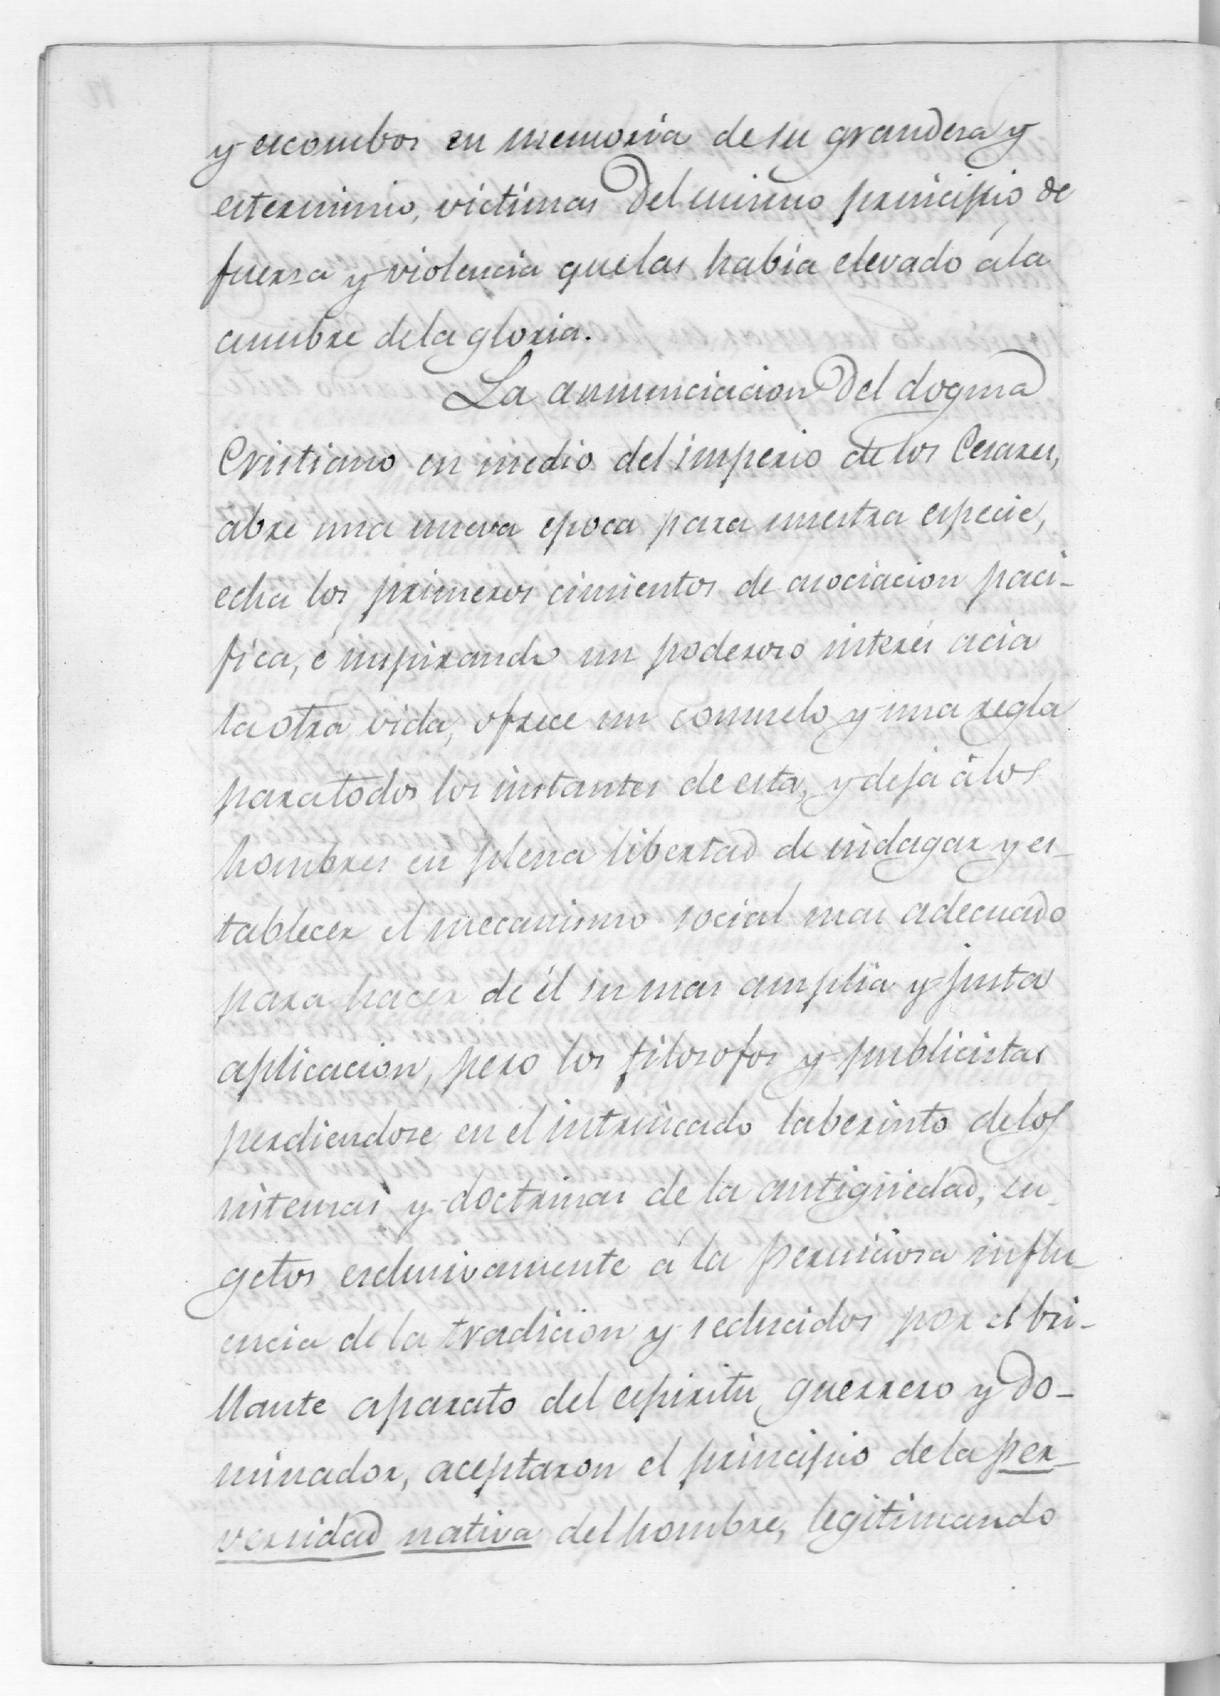 y escombos en memoria de su grandesa y
esterminio, victimas del mismo principio de
fuersa y violencia que las habia elevado á la
cumbre de la gloria.
La anunciacion del dogma
Cristiano en medio del imperio de los Cesares,
abre una nueva epoca para nuestra especie,
echa los primeros cimientos de asociacion paci-
fica, é inspirando un poderoso interés acia
la otra vida, ofrece un consuelo y una regla
para todos los instantes de esta, y deja á los
hombres en plena libertad de indagar y es-
tablecer el mecanismo social mas adecuado
para hacer de él su mas amplia y justa
aplicacion, pero los filosofos y publicistas
perdiendose en el intrincado laberinto de los
sistemas y doctrinas de la antigüedad, su-
getos esclusivamente á la perniciosa influ-
encia de la tradicion y seducidos por el bri-
llante aparato del espiritu guerrero y do-
minador, aceptaron el principio de la per-
versidad nativa del hombre, legitimando